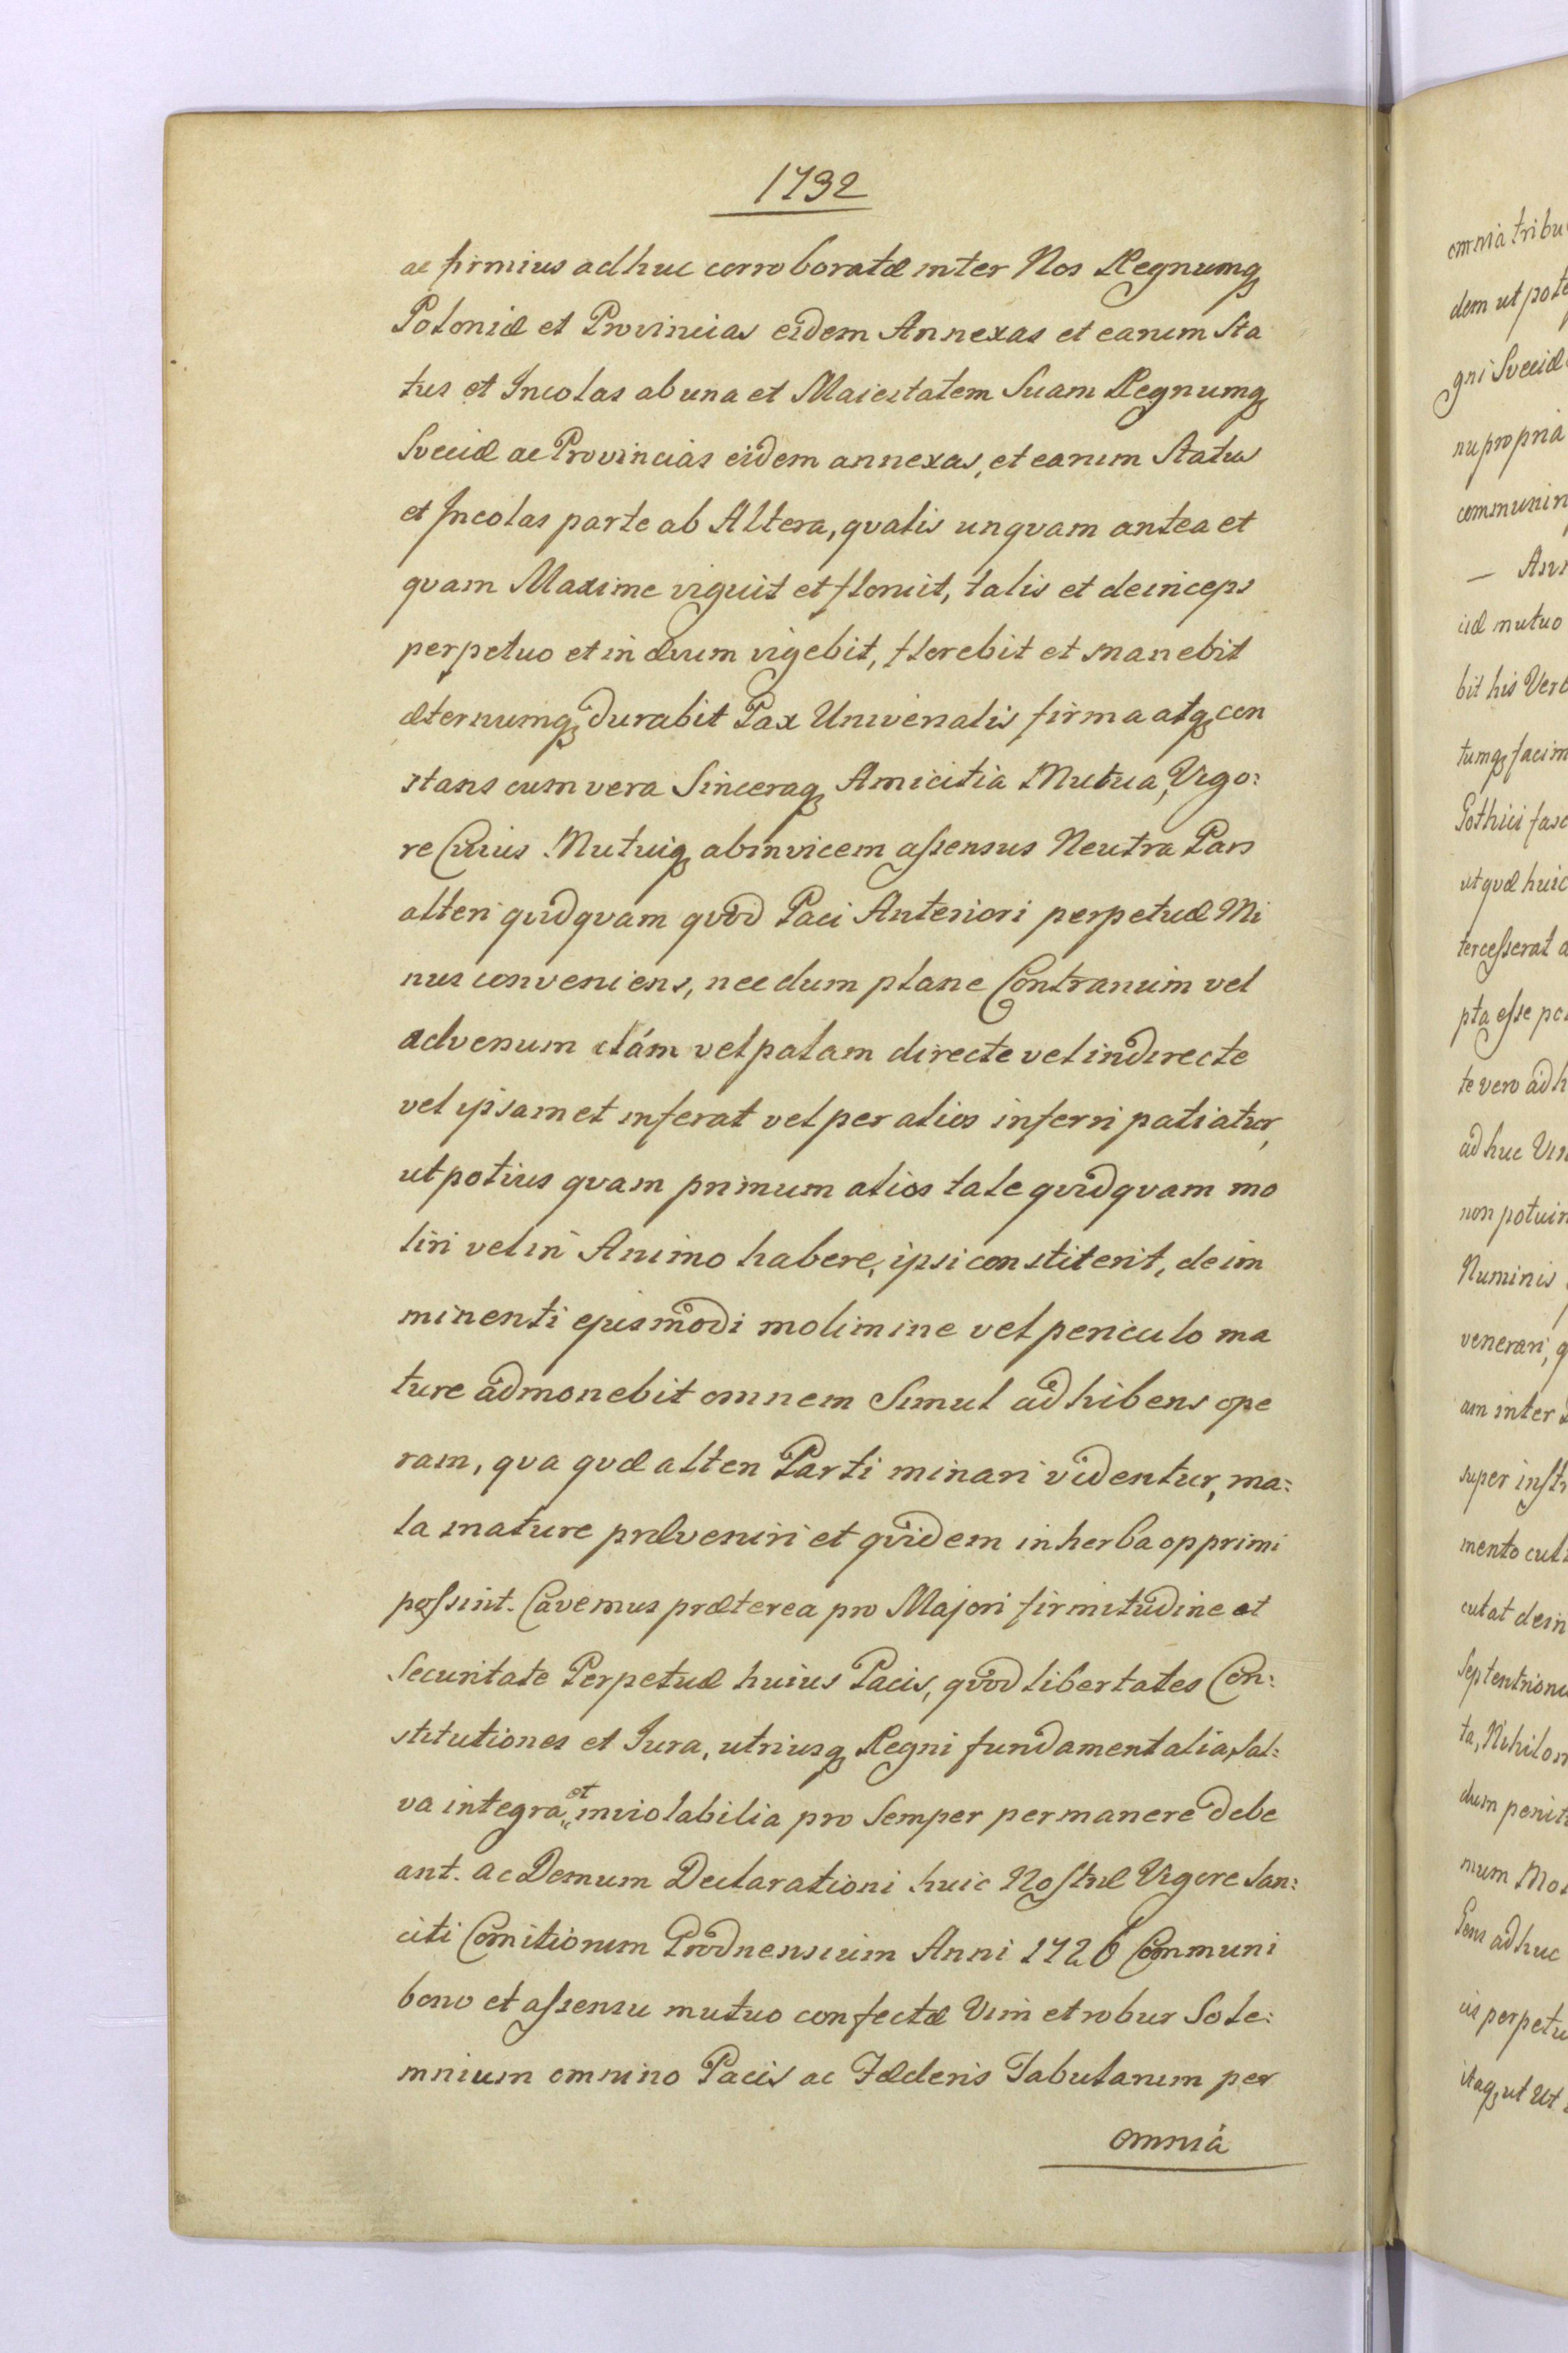 1732
ac firmius adhuc corroboratæ inter Nos Regnumq
Poloniæ et Provincias eidem Annexas et earum Sta
tus et Incolas ab una et Maiestatem Suam Regnumq
Sveciæ ac Provincias eidem annexas, et earum Status
et Incolas parte ab Altera, qvalis unqvam antea et
qvam Maxime viguit et floruit, talis et deinceps
perpetuo et in ævum vigebit, florebit et manebit
æternumq durabit Pax Universalis firma atq con
stans cum vera Sinceraq Amicitia Mutua, Vigo:
re Cuius Mutuiq abinvicem assensus Neutra Pars
alteri qvidqvam qvod Paci Anteriori perpetuæ Mi
nus conveniens, necdum plane Contrarium vel
adversum clám vel palam directe vel indirecte
vel ipsamet inferat vel per alios inferri patiatur,
ut potius qvam primum alios tale qvidqvam mo
liri vel in Animo habere, ipsi constiterit, de im
minenti ejusmodi molimine vel periculo ma
ture admonebit omnem Simul adhibens ope
ram, qva qvæ alteri Parti minari videntur, ma:
la mature præveniri et qvidem in herba opprimi
possint. Cavemus præterea pro Majori firmitudine et
Securitate Perpetuæ huius Pacis, qvod libertates Con:
stitutiones et Jura, utriusq Regni fundamentalia, Sal:
va integra et inviolabilia pro Semper permanere debe
ant. ac Demum Declarationi huic Nostræ Vigore San:
citi Comitiorum Grodnensium Anni 1726 Communi
bono et assensu mutuo confectæ Vim et robur Sole:
mnium omnino Pacis ac Fæderis Tabularum per
omnia
omnia tribu
dem ut pote
gni Sveciæ
nu propria
communin
— Ann
iæ mutuo
bit his Verb
tumq facim
Gothici fasc
ut qvæ huic
tercesserat a
pta esse po
te vero adh
adhuc Vin
non potuir
Numinis
venerari, q
am inter
super instr
mento cult
cutat dein
Septentrion
ta, Nihilom
dum penit
mum Mo
Gens adhuc
cis perpetu
itaq ut Ut